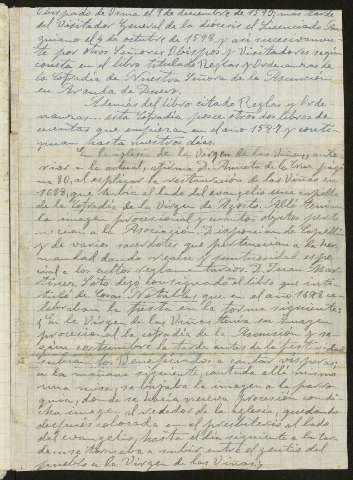 Obispado de Osma el 9 de diciembre de 1593; mas tarde
del Visitador General de la diócesis el Licenciado
quiano el 9 de octubre de 1598 y asi sucesivamen-
te por otros Señores Obispos y Visitadores segun
consta en el libro titulado Reglas y Ordenanzas de
la Cofradia de Nuestra Señora de la Asuncion
en Aranda de Duero.
Además del libro citado Reglas y Orde-
nanzas esta Cofradia posee otros dos libros de
cuentas que empiezan en el año 1597 y conti-
nuan hasta nuestros dias.
En la iglesia de la Virgen de las Viñas, ante-
rior a la actual, afirma D. de la Cruz pági-
na 90, al explicar la visitación de las Viñas en
1682, que habia al lado del evangelio una capilla
de la Cofradia de la Virgen de Agosto. Allí
la imagen procesional y cuantos objetos perte-
necian a la Asociación. Disponian de Capellán
y de varios sacerdotes que pertenecian a la her-
mandad dando realce y puntualidad espe-
cial a los actos reglamentarios. D. Juan Mar-
tinez Soto dejó consignado al libro que inti-
tuló de Cosas Notables, que en el año 1682 ce-
lebraban la fiesta en la forma siguiente:
En la Virgen de las Viñas tenia su imagen
procesional la cofradia de la Asuncion y se-
gun costumbre la tarde antes de la fiesta
subian los Beneficiados a cantar visperas;
en la mañana siguiente, cantada allí mismo
una misa, se bajaba la imagen a la parro-
quia, donde se hacia nueva procesion con di-
cha imagen alrededor de la Iglesia, quedando
despues colocada en el presbiterio al lado
del evangelio, hasta el dia siguiente a la tar-
de en se tornaba a subir entre el gentio del
pueblo a la Virgen de las Viñas.